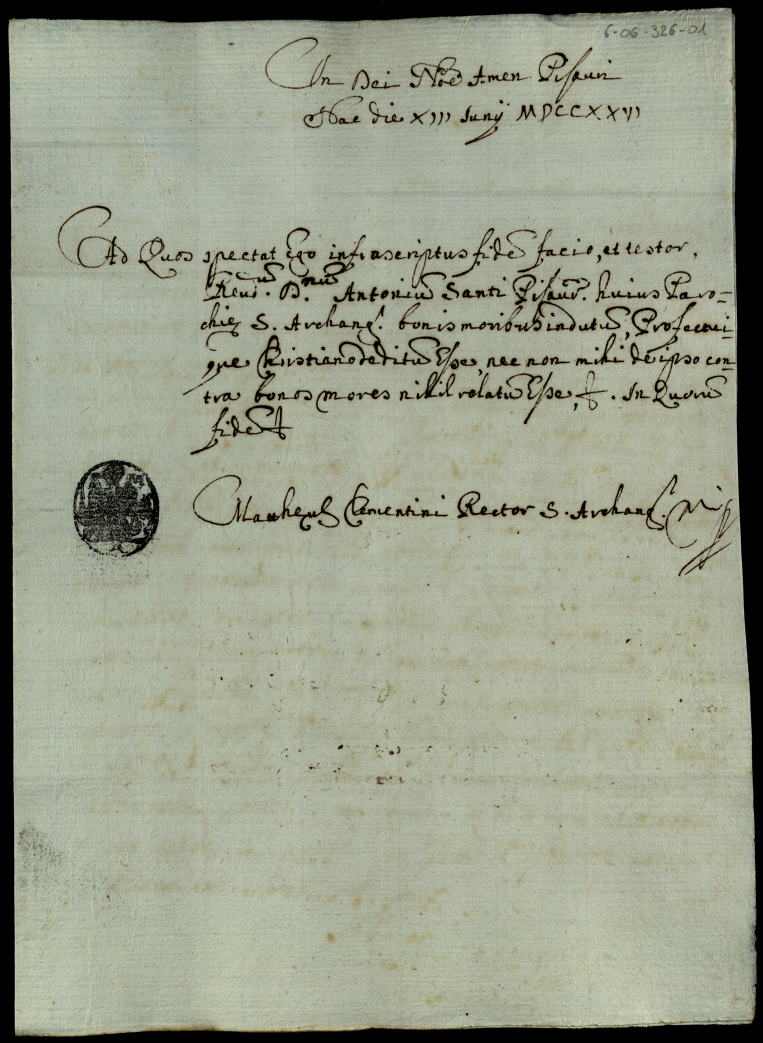 6-06-326-01
In Dei Nõe Amen Pisauri
Hac die XIII Junij MDCCXXVI
Ad Quos spectat Ego infrascriptus fidẽ facio, et testor,
Reuḋ.ũ D.nũ Antoniũ Santi Pisaur. huius Paro=
chię S. Archang. bonis moribus indutũ, Profectui=
que Christiano deditũ Esse, nec non mihi de ipso con=
tra bonos mores nihil relatũ Esse, &. In Quorũ
fidẽ &
Mattheus Clementini Rector S. Archang. Mp